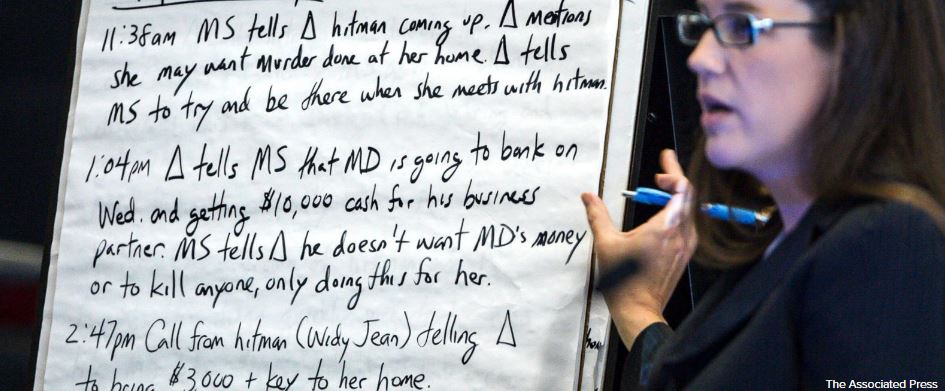 11:38am MS tells Δ hitman coming up. Δ mentions
she may want murder done at her home. Δ tells
MS to try and be there when she meets with hitman.
1:04pm Δ tells MS that MD is going to bank on
Wed. and getting $10,000 cash for his business
partner. MS tells Δ he doesn't want MD's money
or to kill anyone, only doing this for her.
2:47pm Call from hitman (Widy Jean) telling Δ
to bring $3,000 + key to her home.
The Associated Press